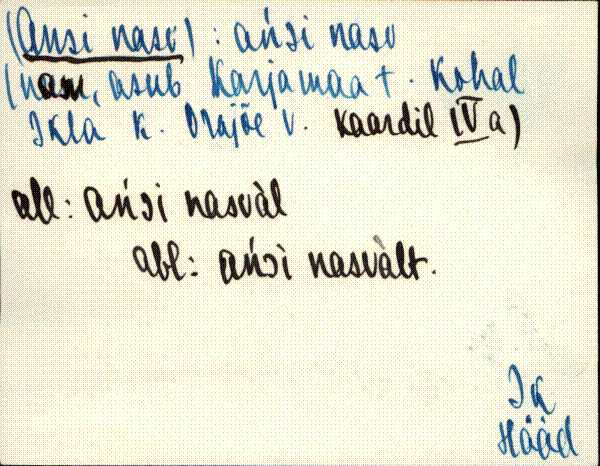 (Ansi nasv) : ańsi nasv
(nasv, asub Karjamaa t. kohal
Ikla k. Orajõe v. kaardil IV a)
all: ańsi nasvàl
abl: ańsi nasvàlt.
Ik
Hääd